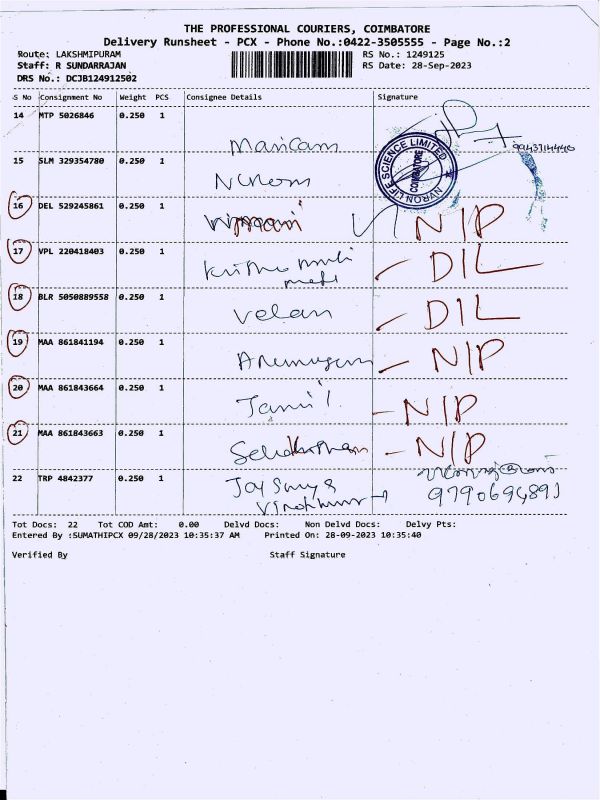 THE PROFESSIONAL COURIERS, COIMBATORE
Delivery Runsheet - PCX - Phone No.:0422-3505555 - Page No.:2
Route: LAKSHMIPURAM RS No.: 1249125
Staff: R SUNDARRAJAN RS Date: 28-Sep-2023
DRS No.: DCJB124912502
S No Consignment No Weight PCS Consignee Details Signature
14 MTP 5026846 0.250 1
Manicam 9943714440
15 SLM 329354780 0.250 1
NYRON LIFE SCIENCE LIMITED
COIMBATORE
16 DEL 529245861 0.250 1
N/P
17 VPL 220418403 0.250 1
- D/L
18 BLR 5050889558 0.250 1
velan - D/L
19 MAA 861841194 0.250 1
Arumugam - N/P
20 MAA 861843664 0.250 1
Tamil - N/P
21 MAA 861843663 0.250 1
- N/P
22 TRP 4842377 0.250 1
Joy Surya 9790694891
Tot Docs: 22 Tot COD Amt: 0.00 Delvd Docs: Non Delvd Docs: Delvy Pts:
Entered By :SUMATHIPCX 09/28/2023 10:35:37 AM Printed On: 28-09-2023 10:35:40
Verified By Staff Signature